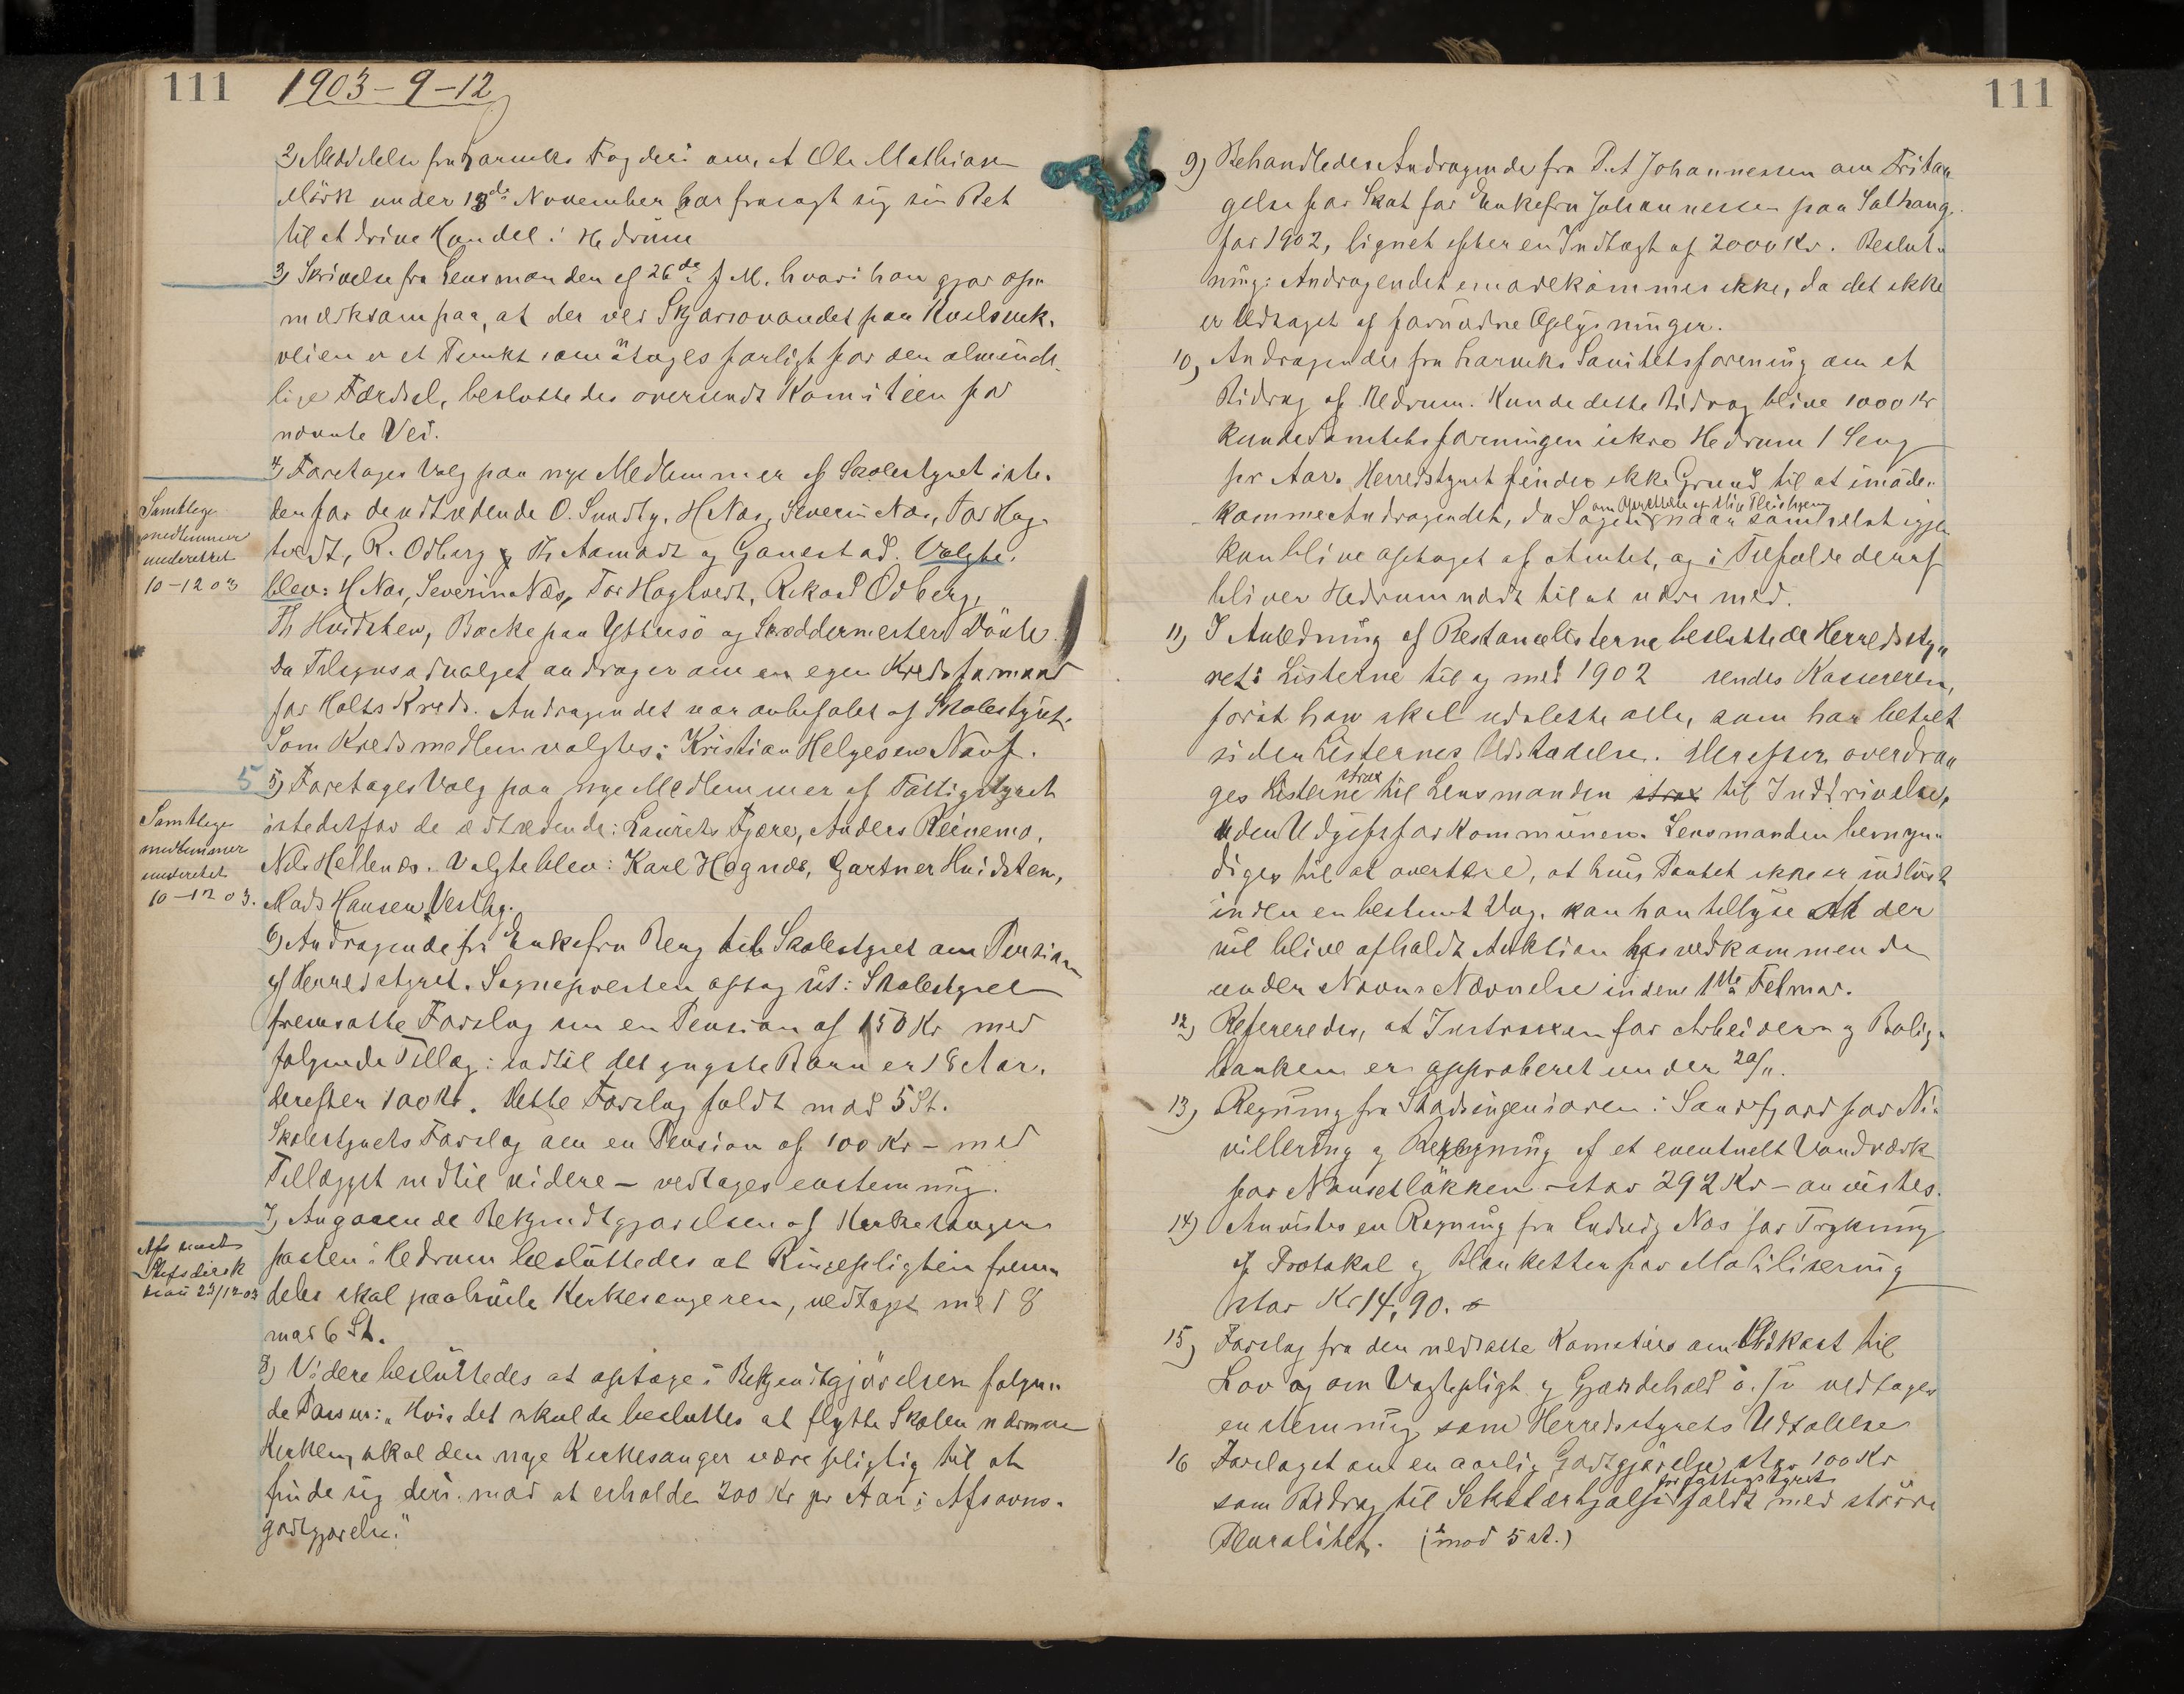 111 1903-9-12
2) Meddelelse fra Larviks Fogderi om, at Ole Mathisen
Mørk under 18de November har frasagt sig sin Ret
til at drive Handel i Hedrum
3) Skrivelse fra Lensmanden af 26de f M. hvori han gjør op-
mærksom paa, at der ved Skjærsovandet paa Kvelsvek-
veien er et Punkt som ansages farligt for den alminde-
lige Færdsel, besluttedes oversendt Komiteen for
nævnte Vei.
4) Foretages Valg paa nye Medlemmer af Skolestyret iste-
den for de udtrædende O. Sundby, H Næs, Severin Næs, Tor Hag-
tvedt, R. Odberg og Th Aamodt og Ganestad. Valgte
blev: H Næs, Severin Næs, Tor Hagtvedt, Rikard Odberg,
Th Hvidsten, Bakke paa Yttersø og Skræddermester Dönte.
Da Tilsynsudvalget andrager om en egen Kredsformand
for Holts Kreds. Andragendet var anbefalet af Skolestyret.
Som Kredsmedlem valgtes: Kristian Helgesen Nauf.
5 5) Foretages Valg paa nye Medlemmer af Fattigstyret
istedetfor de udtrædende: Laurits Fjære, Anders Reinemo,
Nils Hellenes. Valgte blev: Karl Hognes, Gartner Hvidsten,
Mads Hansen Vestby.
6) Andragende fra Enkefru Berg til Skolestyret om Pension
af Herredstyret. Sognepresten optog ut: Skolestyret
fremsatte Forslag om en Pension af 150 Kr med
følgende Tillæg: indtil det yngste Barn er 18 Aar,
derefter 100 Kr. Dette Forslag faldt mod 5 St.
Skolestyrets Forslag om en Pension af 100 Kr – med
Tillægget indtil videre – vedtages enstemmig.
7) Angaaende Bekjendtgjørelsen af Kirkesanger
posten i Hedrum besluttedes at Ringepligten frem-
deles skal paahvile Kirkesangeren, vedtaget med 8
mod 6 St.
8) Videre besluttedes at optage i Bekjendtgjørelsen følgen-
de Passus: "Hvis det skulde besluttes at flytte Skolen nærmere
Kirken, skal den nye Kirkesanger være pligtig til at
finde sig deri mod at erholde 200 Kr pr Aar i Afsavns-
godtgjørelse."
Samtlige
medlemmer
underettet
10-12 03
Samtlige
medlemmer
underettet
10-12 03.
Afs sendt
Stiftsdirek
tion 23/12 03
111
9) Behandledes Andragende fra P. A Johannessen om Fritag-
gelse for Skat for Enkefru Johannessen paa Solhaug
for 1902, lignet efter en Indtægt af 2000 Kr. Beslut-
ning: Andragendet imødekommes ikke, da det ikke
er ledsaget af fornødne Oplysninger.
10) Andragende fra Larviks Sanitetsforening om et
Bidrag af Hedrum. Kunde dette Bidrag blive 1000 Kr
kunde Sanitetsforeningen sikre Hedrum 1 Seng
pr Aar. Herredstyret finder ikke Grund til at imøde-
komme Andragendet, da Sagen om Oprettelse af slig Pleiehjem naar somhelst igjen
kan blive optaget af Amtet, og i Tilfælde deraf
bliver Hedrum nødt til at være med.
11) I Anledning af Restancelisterne besluttede Herredssty-
ret: Listerne til og med 1902 sendes Kassereren,
forat han skal udslette alle, som har betalt
siden Listernes Udstædelse. Derefter overdra-
ges Listerne strax til Lensmanden strax til Inddrivelse,
uden Udgift for Kommunen. Lensmanden bemyn-
diges til at avertere, at hvis Pantet ikke er indløst
inden en bestemt Dag, kan han tillyse at der
vil blive afholdt Auktion hos vedkommende
under Navns Nævnelse inden 1ste Februar.
12) Refereredes, at Instruxen for Arbeider- og Bolig-
banken er approberet under 20/11.
13) Regning fra Stadsingeniøren i Sandefjord for Ni-
vellering og Beregning af et eventuelt Vandværk
for Nansetløkken – stor 292 Kr – anvistes.
14) Anvistes en Regning fra Ludvig Næs for Trykning
af Protokol og Blanketter for Mobilisering
stor Kr 14,90.
15) Forslag fra den nedsatte Komite om Udkast til
Lov og om Vagtpligt og Gjærdehold o. s v vedtages
enstemmig som Herredsstyrets Udtalelse
16 Forslaget om en aarlig Godtgjørelse stor 100 Kr
som Bidrag til Sekretærhjælp for fattigstyret faldt med større
Pluralitet. (mod 5 st.)